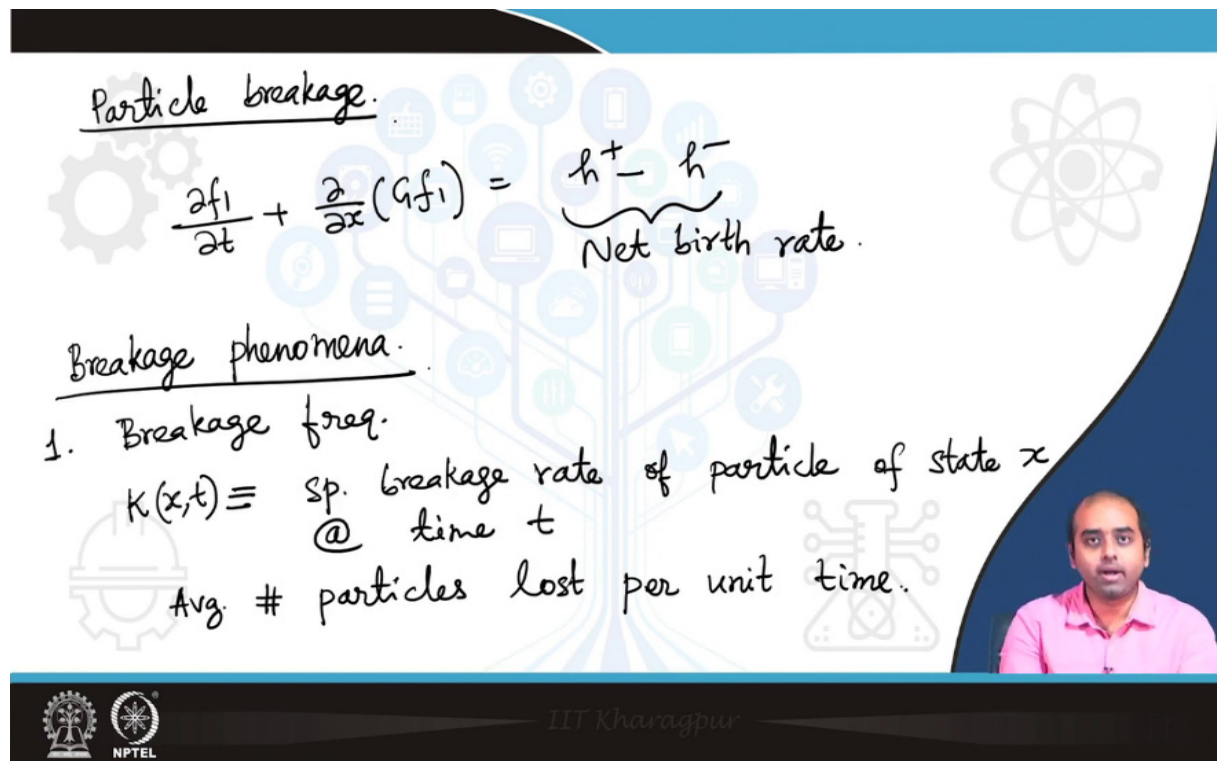 Particle breakage.
∂f₁/∂t + ∂/∂x (Gf₁) = h⁺ - h⁻
Net birth rate.
Breakage phenomena.
1. Breakage freq.
K(x,t) ≡ Sp. breakage rate of particle of state x
@ time t
Avg. # particles lost per unit time.
IIT Kharagpur
NPTEL